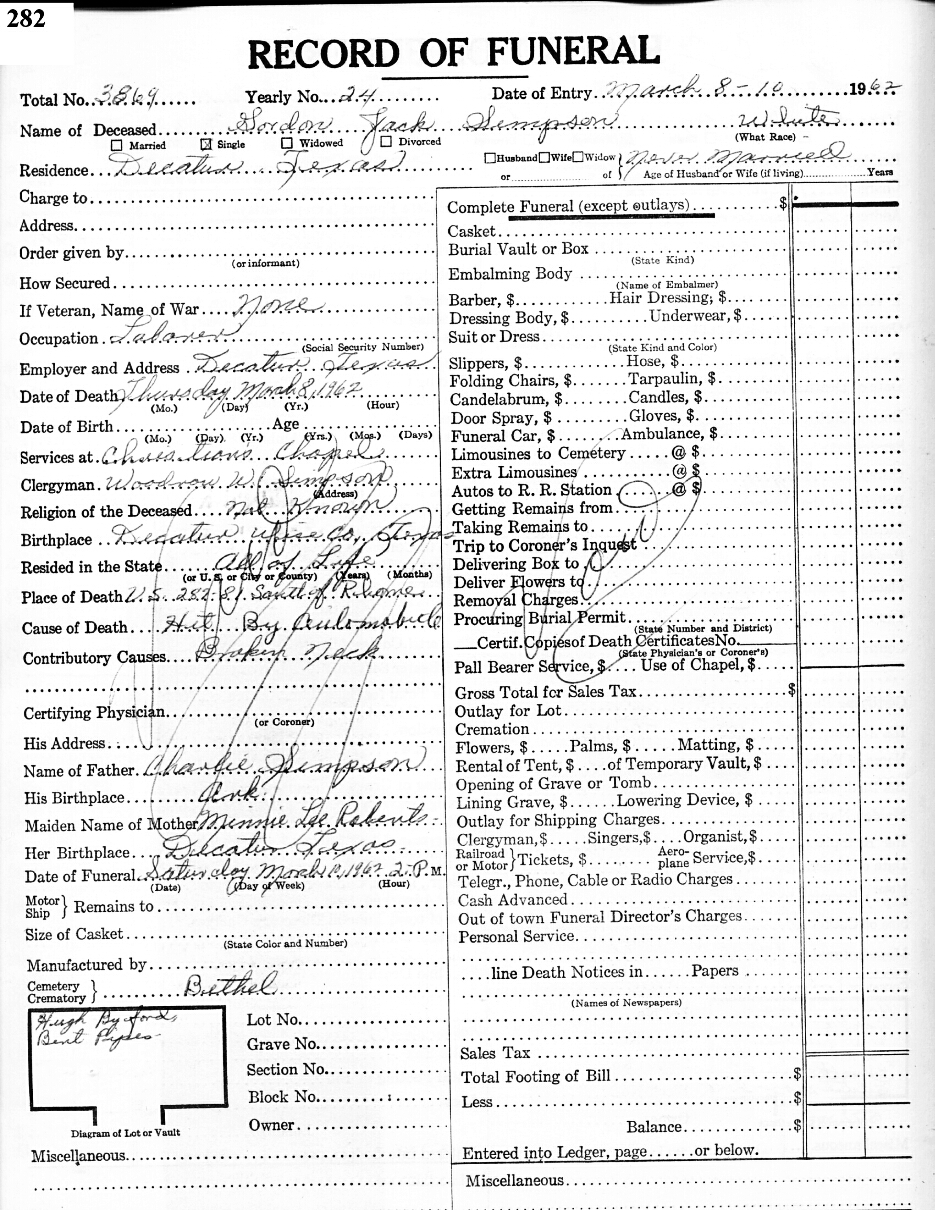 282
RECORD OF FUNERAL
Total No. 3869 Yearly No. 24 Date of Entry March 8-10 1962
Name of Deceased Gordon Jack Simpson White
(What Race)
☐ Married ☒ Single ☐ Widowed ☐ Divorced
☐Husband☐Wife☐Widow or of } Never Married
Residence Decatur Texas Age of Husband or Wife (if living) Years
Charge to
Address
Order given by
(or informant)
How Secured
If Veteran, Name of War None
Occupation Laborer
(Social Security Number)
Employer and Address Decatur Texas
Date of Death Thursday March 8, 1962
(Mo.) (Day) (Yr.) (Hour)
Date of Birth Age
(Mo.) (Day) (Yr.) (Yrs.) (Mos.) (Days)
Services at Chapel
Clergyman Woodrow W. Simpson
(Address)
Religion of the Deceased Not Known
Birthplace Decatur Wise Co, Texas
Resided in the State All of Life
(or U. S. or City or County) (Years) (Months)
Place of Death U.S. 287-81 South of Rhome
Cause of Death Hit By Automobile
Contributory Causes Broken Neck
Certifying Physician
(or Coroner)
His Address
Name of Father Charlie Simpson
His Birthplace Ark
Maiden Name of Mother Minnie Lee Roberts
Her Birthplace Decatur Texas
Date of Funeral Saturday March 10, 1962 2: P.M.
(Date) (Day of Week) (Hour)
Motor Ship } Remains to
Size of Casket
(State Color and Number)
Manufactured by
Cemetery Crematory } Bethel
Hugh Byford,
Bent Pipes
Lot No.
Grave No.
Section No.
Block No.
Owner
Diagram of Lot or Vault
Miscellaneous
Complete Funeral (except outlays) $
Casket
Burial Vault or Box
(State Kind)
Embalming Body
(Name of Embalmer)
Barber, $ Hair Dressing, $
Dressing Body, $ Underwear, $
Suit or Dress
(State Kind and Color)
Slippers, $ Hose, $
Folding Chairs, $ Tarpaulin, $
Candelabrum, $ Candles, $
Door Spray, $ Gloves, $
Funeral Car, $ Ambulance, $
Limousines to Cemetery @ $
Extra Limousines @ $
Autos to R. R. Station @ $
Getting Remains from
Taking Remains to
Trip to Coroner's Inquest
Delivering Box to
Deliver Flowers to
Removal Charges
Procuring Burial Permit
(State Number and District)
Certif. Copies of Death Certificates No.
(State Physician's or Coroner's)
Pall Bearer Service, $ Use of Chapel, $
Gross Total for Sales Tax $
Outlay for Lot
Cremation
Flowers, $ Palms, $ Matting, $
Rental of Tent, $ of Temporary Vault, $
Opening of Grave or Tomb
Lining Grave, $ Lowering Device, $
Outlay for Shipping Charges
Clergyman,$ Singers,$ Organist,$
Railroad or Motor } Tickets, $ Aero-plane Service,$
Telegr., Phone, Cable or Radio Charges
Cash Advanced
Out of town Funeral Director's Charges
Personal Service
line Death Notices in Papers
(Names of Newspapers)
Sales Tax
Total Footing of Bill $
Less $
Balance $
Entered into Ledger, page or below.
Miscellaneous